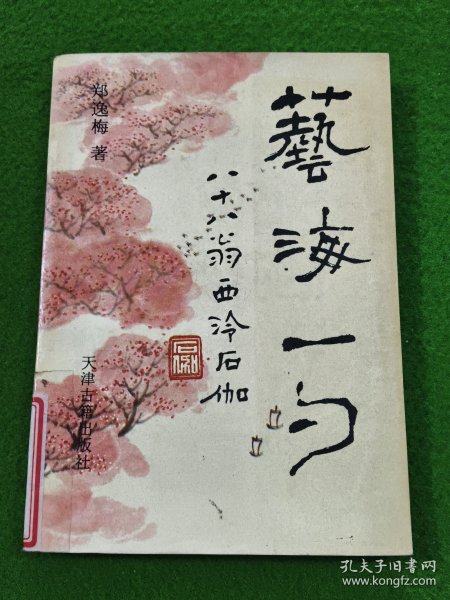 藝海一勺
八十八翁西泠石伽
郑逸梅 著
天津古籍出版社
孔夫子旧书网
www.kongfz.com